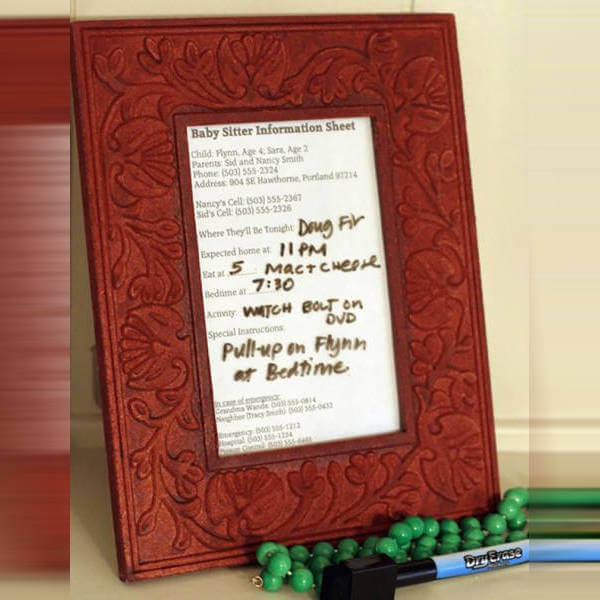 Baby Sitter Information Sheet
Child: Flynn, Age 4; Sara, Age 2
Parents: Sid and Nancy Smith
Phone: (503) 555-2324
Address: 904 SE Hawthorne, Portland 97214
Nancy's Cell: (503) 555-2367
Sid's Cell: (503) 555-2326
Where They'll Be Tonight: Doug Fir
Expected home at: 11 PM
Eat at 5 Mac + cheese
Bedtime at 7:30
Activity: WATCH BOLT on
DVD
Special Instructions:
Pull-up on Flynn
at Bedtime
In case of emergency:
Grandma Wanda: (503) 555-0814
Neighbor (Tracy Smith): (503) 555-0432
Emergency: (503) 555-1212
Hospital: (503) 555-1234
Poison Control: (503)
Dry Erase